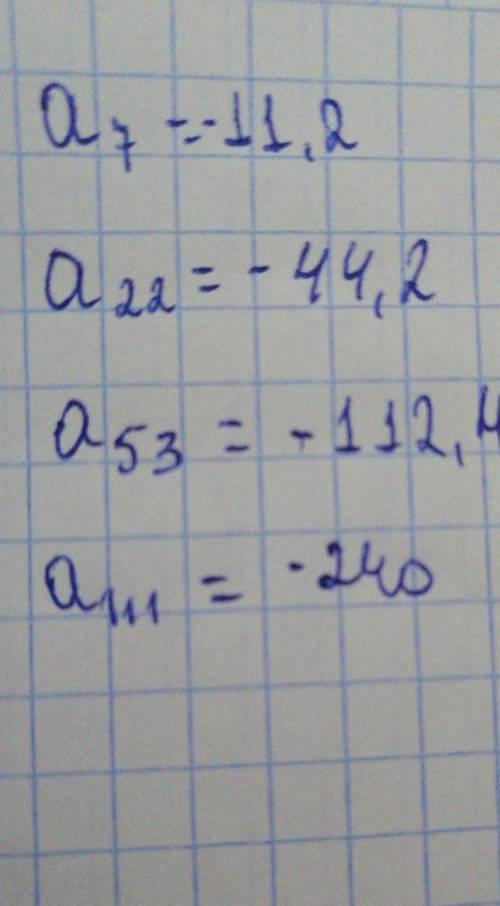 a₇ = -11,2
a₂₂ = - 44,2
a₅₃ = - 112,4
a₁₁₁ = -240